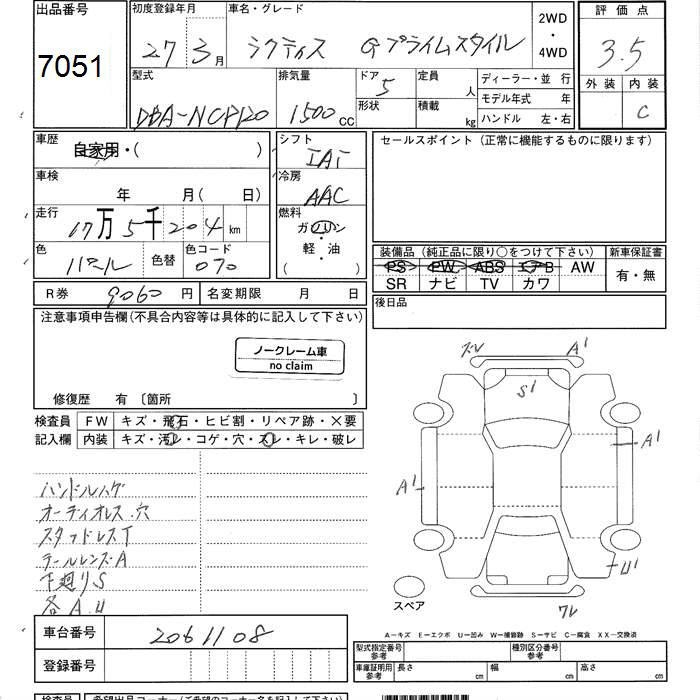 出品番号 初度登録年月 車名・グレード 2WD ・ 4WD 評価点
7051 27 3月 ラクティス Gプライムスタイル 3.5
型式 排気量 ドア 5 定員 人 ディーラー・並 行 外装 内装
DBA-NCP120 1500cc 形状 積載 kg モデル年式 年 C
ハンドル 左・右
車歴 自家用・( ) シフト IAT セールスポイント(正常に機能するものに限ります)
車検 年 月(日) 冷房 AAC
走行 17万5千204km 燃料 ガソリン・軽・油 ( )
色 パール 色替 色コード 070 装備品(純正品に限り○をつけて下さい) 新車保証書
PS PW ABS エアB AW 有・無
SR ナビ TV カワ
R券 9060円 名変期限 月 日 後日品
注意事項申告欄(不具合内容等は具体的に記入して下さい)
ノークレーム車
no claim
修復歴 有 〔箇所 〕
検査員 FW キズ・飛石・ヒビ割・リペア跡・×要
記入欄 内装 キズ・汚レ・コゲ・穴・スレ・キレ・破レ
ズレ A1
S1
A1
A1
U1
ワレ
スペア
ハンドルハゲ
オーディオレス.穴
スタッドレスT
テールレンズA
下廻りS
各A.U
車台番号 2061108
登録番号
A−キズ E−エクボ U−凹み W−補修跡 S−サビ C−腐食 XX−交換済
型式指定番号 参考 種別区分番号 参考
車庫証明用 参考 長さ cm 幅 cm 高さ cm
検査員 希望出品コーナー(ご希望のコーナー名を記入して下さい)